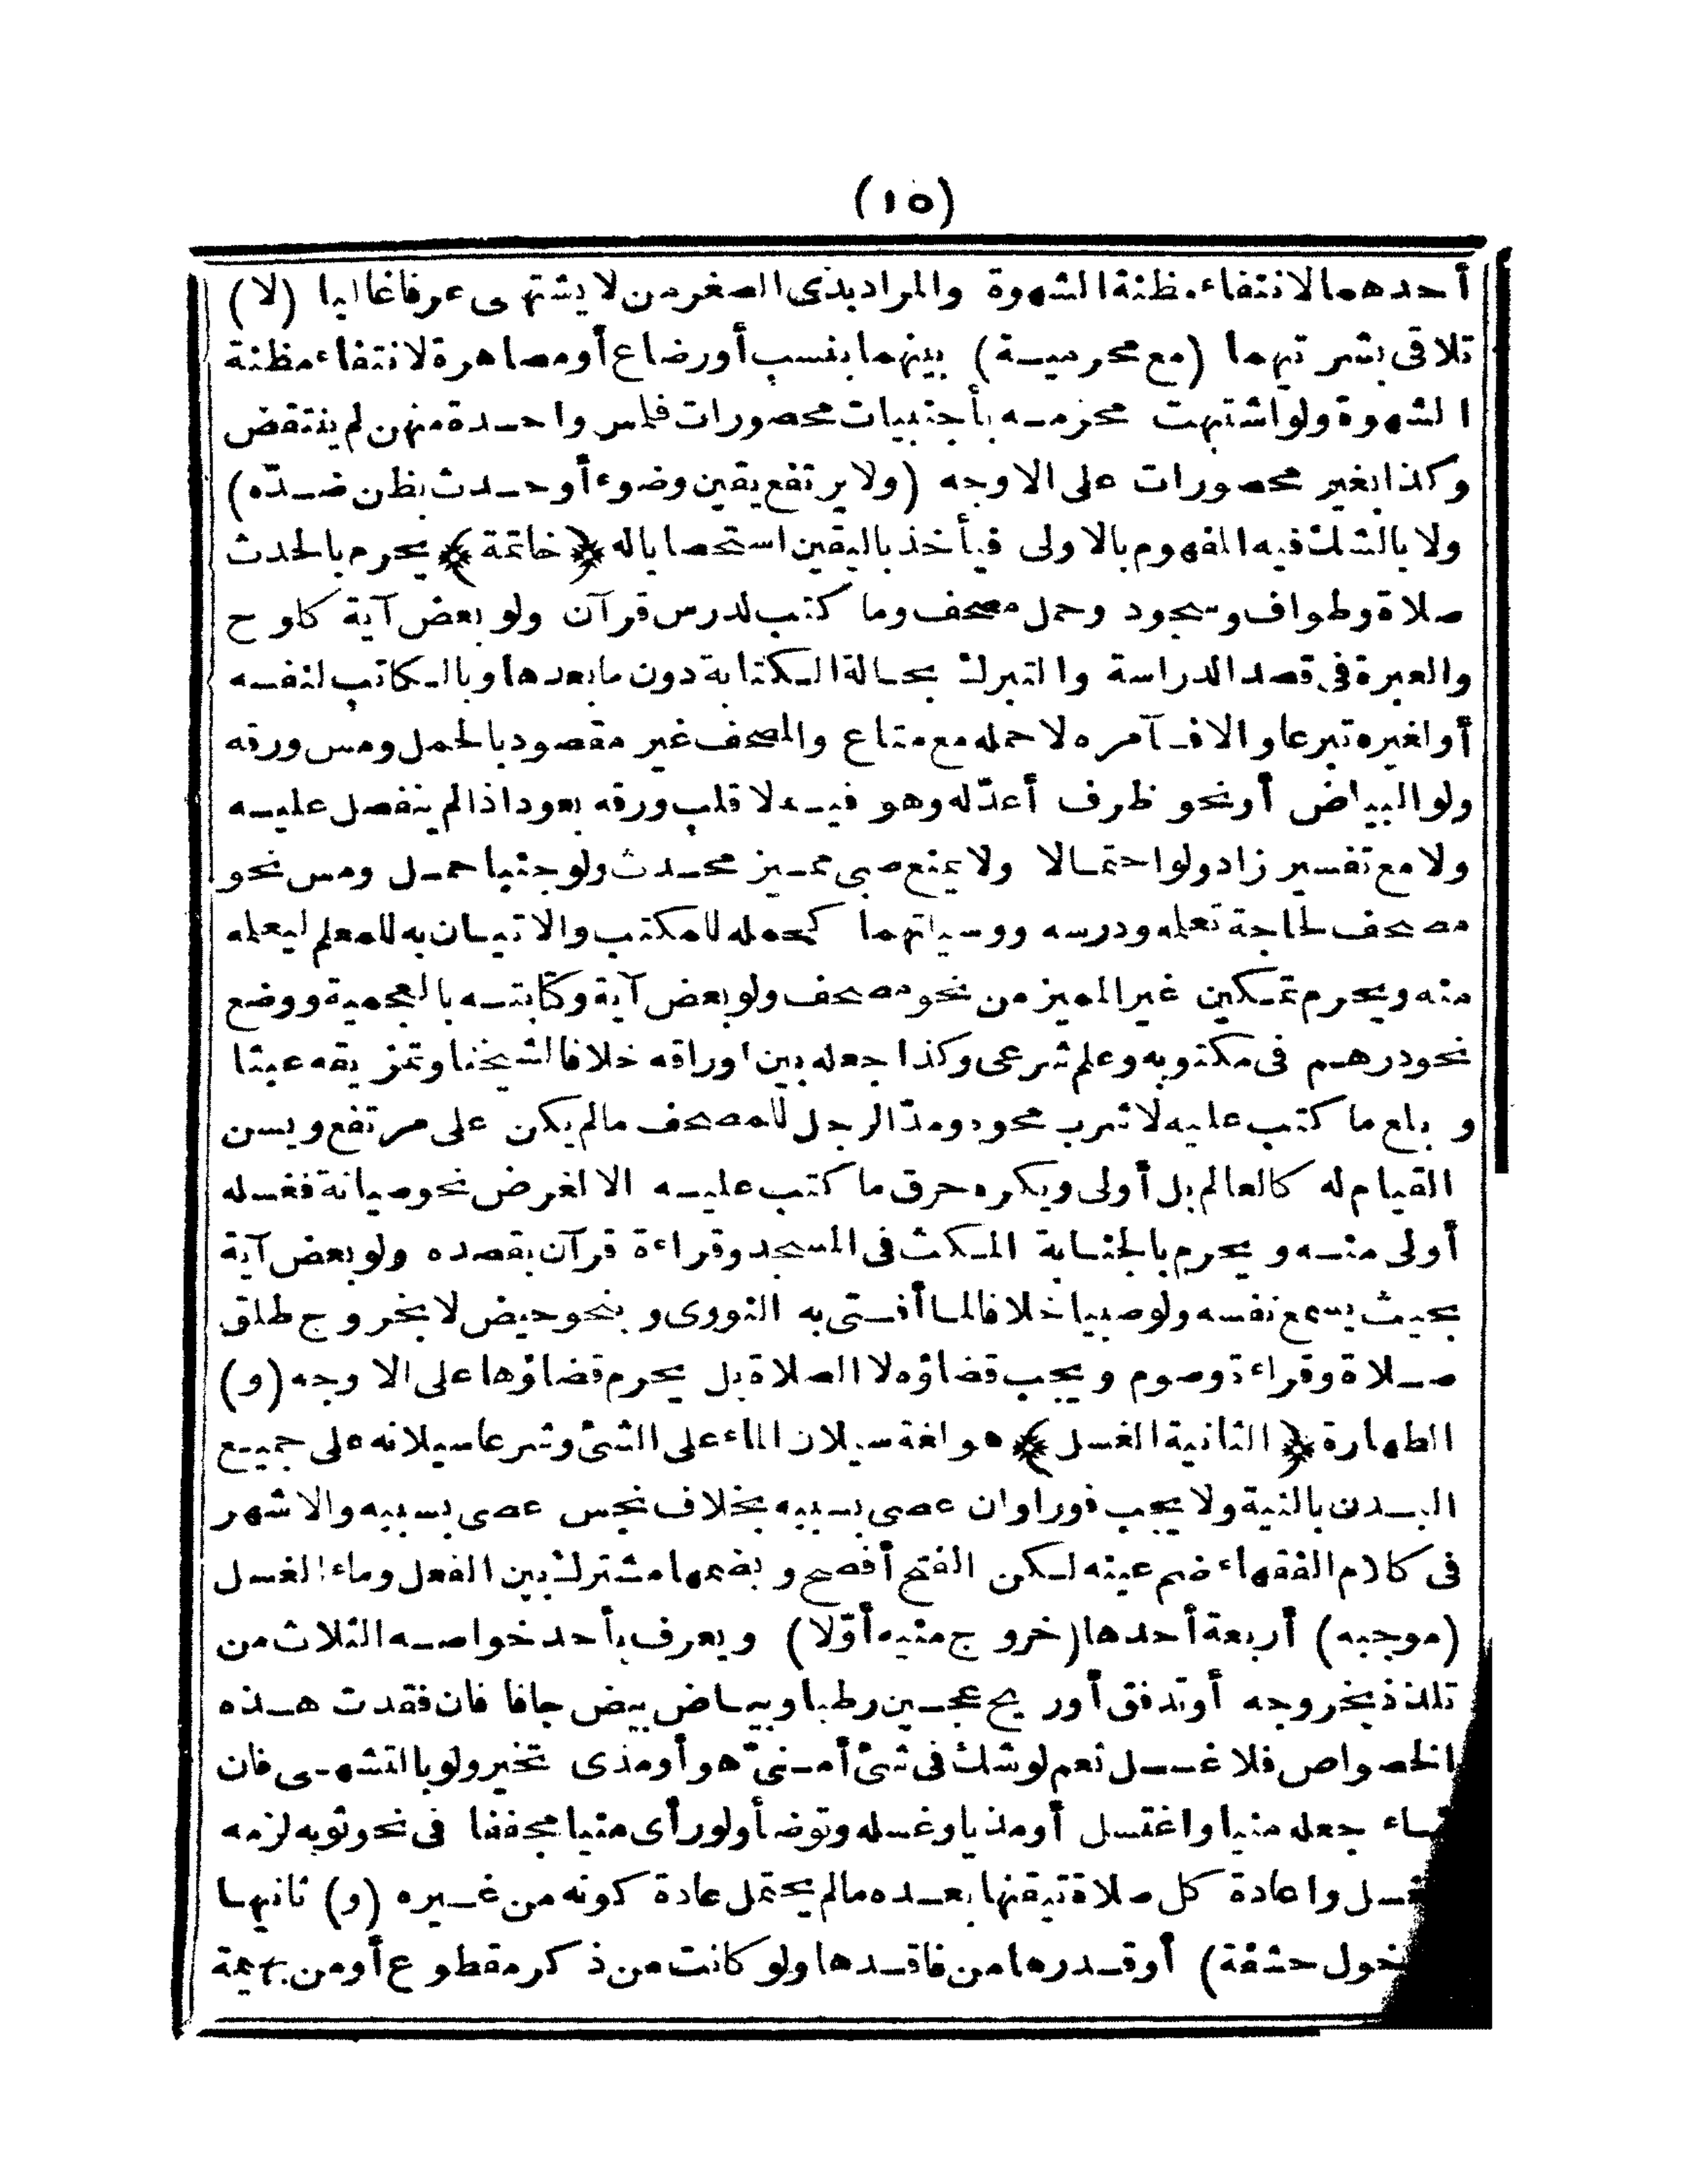 (١٥)
أحدهما لانتفاء مظنة الشهوة والمراد بذى الصغر من لا يشتهى عرفا غالبا (لا)
تلاقى بشرتيهما (مع محرمية) بينهما بنسب أو رضاع أو مصاهرة لانتفاء مظنة
الشهوة ولو اشتبهت محرمه بأجنبيات محصورات فلمس واحدة منهن لم ينتقض
وكذا بغير محصورات على الاوجه (ولا يرتفع يقين وضوء أو حدث بظن ضدّه)
ولا بالشك فيه المفهوم بالاولى فيأخذ باليقين استصحابا له ﴿خاتمة﴾ يحرم بالحدث
صلاة وطواف وسجود وحمل مصحف وما كتب لدرس قرآن ولو بعض آية كلوح
والعبرة فى قصد الدراسة والتبرك بحالة الكتابة دون ما بعدها وبالكاتب لنفسه
أو لغيره تبرعا والا فآمره لا حمله مع متاع والمصحف غير مقصود بالحمل ومس ورقه
ولو البياض أو نحو ظرف أعدّ له وهو فيه لا قلب ورقه بعود اذا لم ينفصل عليه
ولا مع تفسير زاد ولو احتمالا ولا يمنع صبى مميز محدث ولو جنبا حمل ومس نحو
مصحف لحاجة تعلمه ودرسه ووسيلتهما كحمله للمكتب والاتيان به للمعلم ليعلمه
منه ويحرم تمكين غير المميز من نحو مصحف ولو بعض آية وكتابته بالعجمية ووضع
نحو درهم فى مكتوبه وعلم شرعى وكذا جعله بين أوراقه خلافا لشيخنا وتمزيقه عبثا
وبلع ما كتب عليه لا شرب محوه ومدّ الرجل للمصحف ما لم يكن على مرتفع ويسن
القيام له كالعالم بل أولى ويكره حرق ما كتب عليه الا لغرض نحو صيانة فغسله
أولى منه ويحرم بالجنابة المكث فى المسجد وقراءة قرآن بقصده ولو بعض آية
بحيث يسمع نفسه ولو صبيا خلافا لما أفتى به النووى وبنحو حيض لا بخروج طلق
صلاة وقراءة وصوم ويجب قضاؤه لا الصلاة بل يحرم قضاؤها على الاوجه (و)
الطهارة ﴿الثانية الغسل﴾ هو لغة سيلان الماء على الشئ وشرعا سيلانه على جميع
البدن بالنية ولا يجب فورا وان عصى بسببه بخلاف نجس عصى بسببه والاشهر
فى كلام الفقهاء ضم غينه لكن الفتح أفصح وبضمها مشترك بين الفعل وماء الغسل
(موجبه) أربعة أحدها (خروج منيه أوّلا) ويعرف بأحد خواصه الثلاث من
تلذذ بخروجه أو تدفق أو ريح عجين رطبا وبياض بيض جافا فان فقدت هذه
الخصواص فلا غسل نعم لو شك فى شئ أمنىّ هو أو مذى تخير ولو بالتشهى فان
شاء جعله منيا واغتسل أو مذيا وغسله وتوضأ ولو رأى منيا مجففا فى نحو ثوبه لزمه
الغسل واعادة كل صلاة تيقنها بعده ما لم يحتمل عادة كونه من غيره (و) ثانيها
(دخول حشفة) أو قدرها من فاقدها ولو كانت من ذكر مقطوع أو من بهيمة